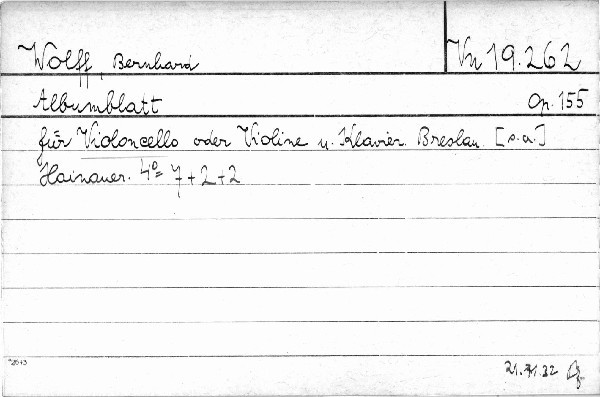 Wolff, Bernhard
Vn 19.262
Albumblatt
Op. 155
für Violoncello oder Violine u. Klavier. Breslau. [s.a.]
Hainauer. 4º= 7+2+2